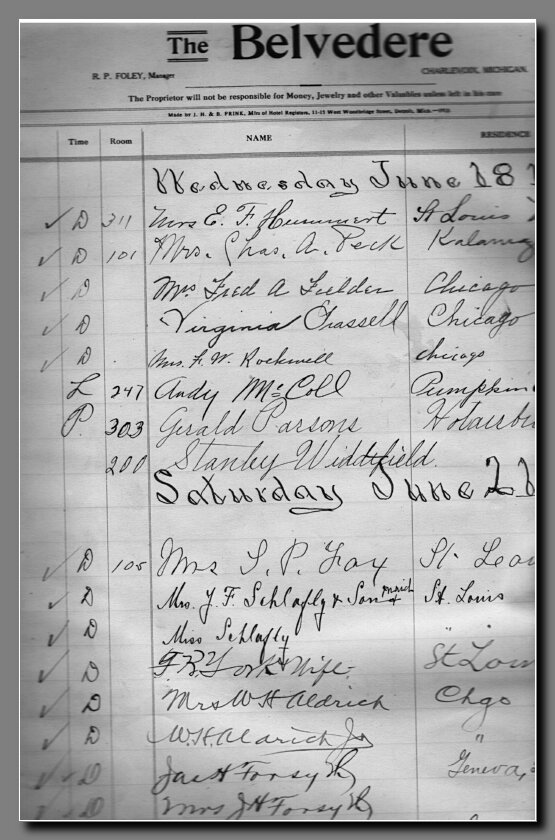 The Belvedere
R. P. FOLEY, Manager
CHARLEVOIX, MICHIGAN.
The Proprietor will not be responsible for Money, Jewelry and other Valuables unless left in his care
Made by J. H. & B. PRINK, Mfrs of Hotel Registers, 11-15 West Woodbridge Street, Detroit, Mich.
Time Room NAME RESIDENCE
Wednesday June 18
D 311 Mrs E. F. Hummert St Louis
D 101 Mrs. Chas. A. Peck Kalamaz
D Mrs Fred A Fielder Chicago
D Virginia Chassell Chicago
D Mrs. F. W. Rockwell Chicago
L 247 Andy McColl Pumpkin
P. 303 Gerald Parsons
200 Stanley Widdifield.
Saturday June 21
D 105 Mrs S. P. St.
D Mrs. J. F. Schlafly & Son St. Louis
D Miss Schlafly "
D F. R. York & Wife St Lou
D Mrs W H Aldrich Chgo
D W. H. Aldrich Jr "
D Jas H Forsyth Geneva,
D Mrs J H Forsyth